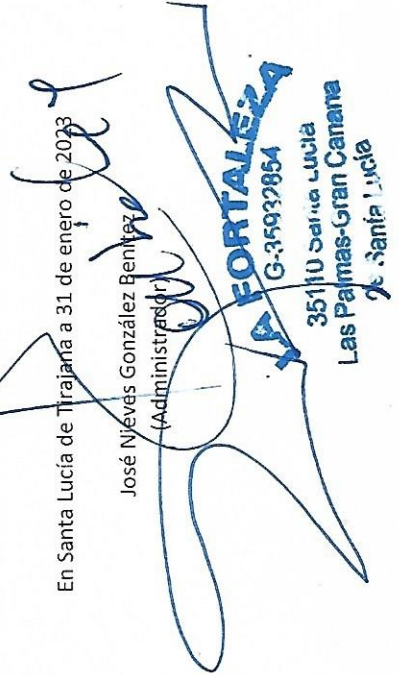 En Santa Lucía de Tirajana a 31 de enero de 2023
José Nieves González Benítez
(Administrador)
LA FORTALEZA
G-35932854
35110 Santa Lucía
Las Palmas-Gran Canaria
Santa Lucía